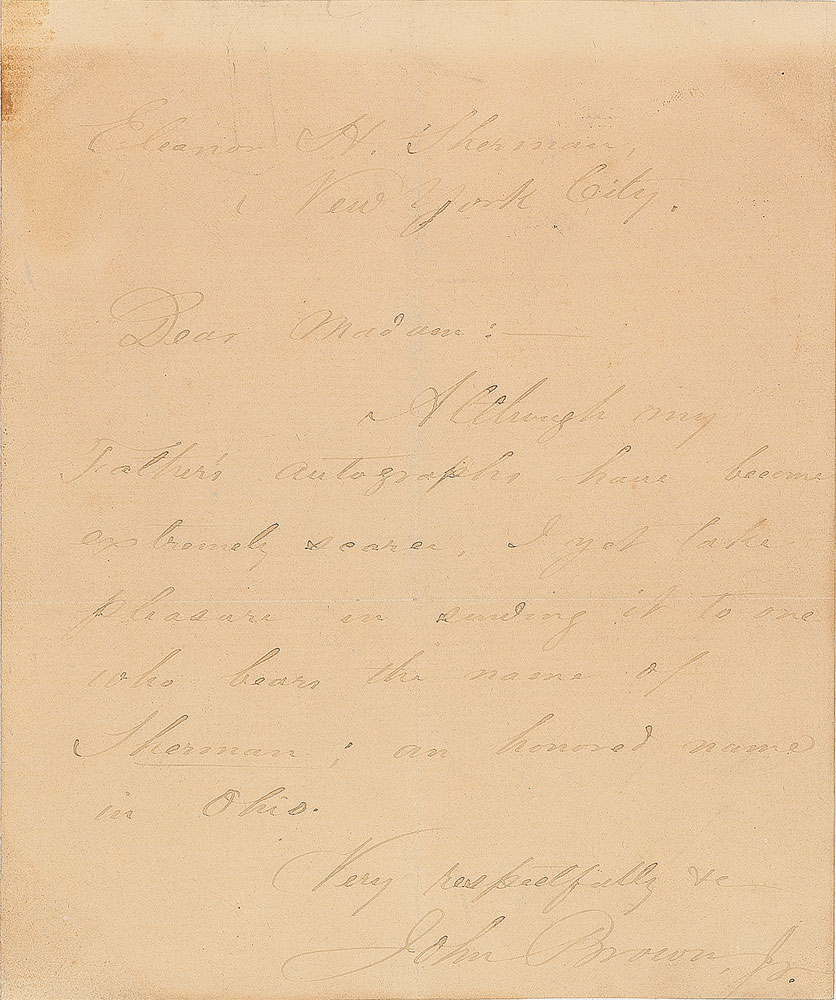 Eleanor H. Sherman,
New York City.
Dear Madam:—
Although my
Father's autographs have become
extremely scarce, I yet take
pleasure in sending it to one
who bears the name of
Sherman; an honored name
in Ohio.
Very respectfully &c
John Brown, Jr.